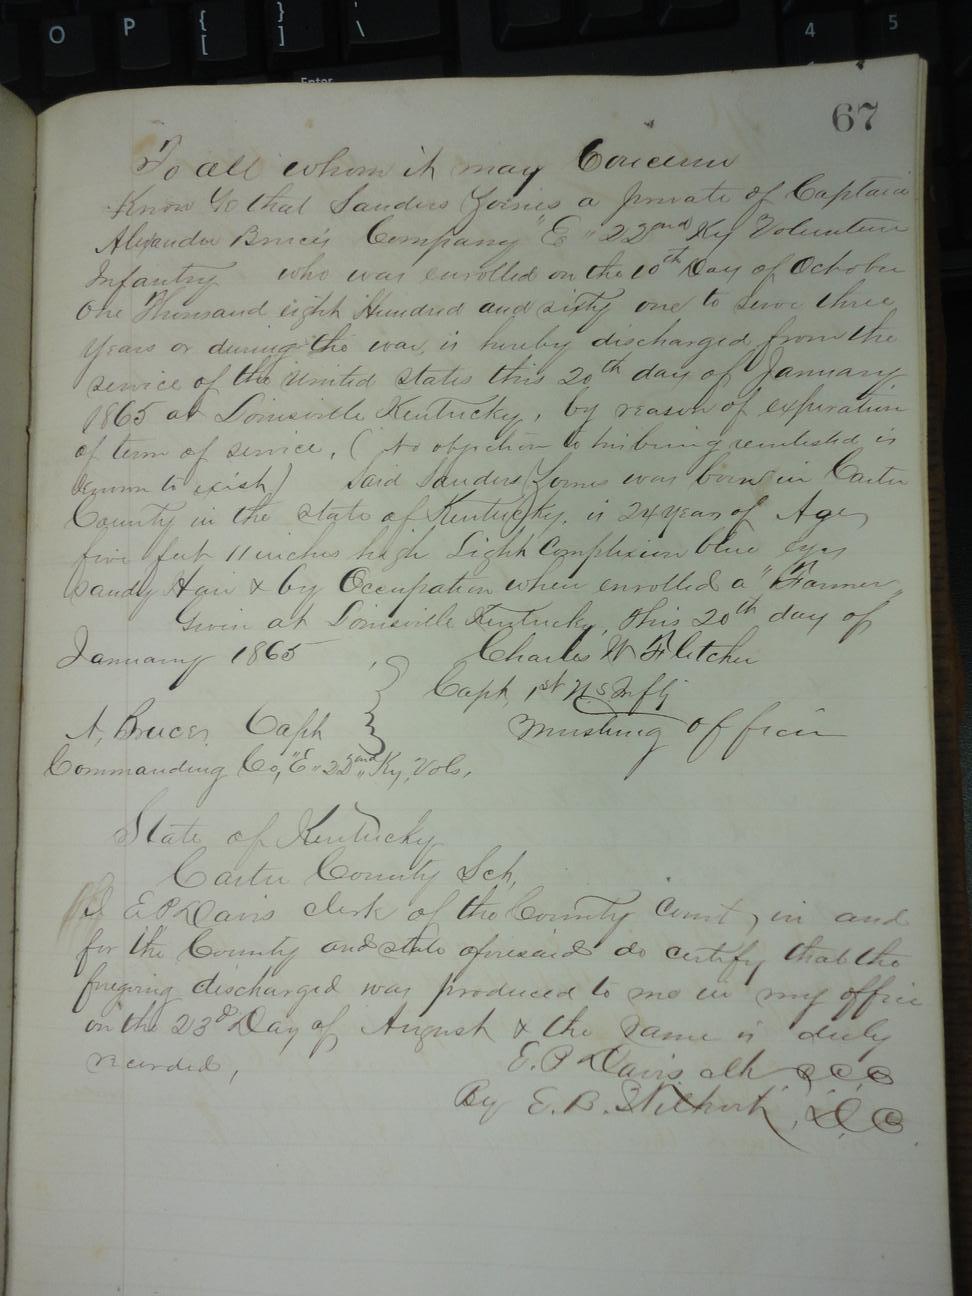 O P { [ } ] | \ 4 5
Enter
67
To all whom it may Concern
Know Ye that Sanders a private of Captain
Alexander Bruce's Company "E" 22nd Ky Volunteer
Infantry who was enrolled on the 10th Day of October
One Thousand eight Hundred and sixty one to serve three
years or during the war, is hereby discharged from the
service of the United States this 20th day of January
1865 at Louisville Kentucky, by reason of expiration
of term of service, (No objection to his being reenlisted is
known to exist) Said Sanders was born in Carter
County in the State of Kentucky, is 24 years of Age,
five feet 11 inches high Light Complexion blue eyes
sandy Hair & by Occupation when enrolled a "Farmer"
Given at Louisville Kentucky, this 20th day of
January 1865
Charles W Fletcher
Capt, 1st U.S. Infty
A, Bruce, Capt
Mustering officer
Commanding Co, "E" 22nd Ky, Vols,
State of Kentucky
Carter County Sct,
I E P Davis clerk of the County Court, in and
for the County and state aforesaid do certify that the
foregoing discharged was produced to me in my office
on the 23d Day of August & the same is duly
recorded,
E. P Davis clk C C C
By E. B. D. C